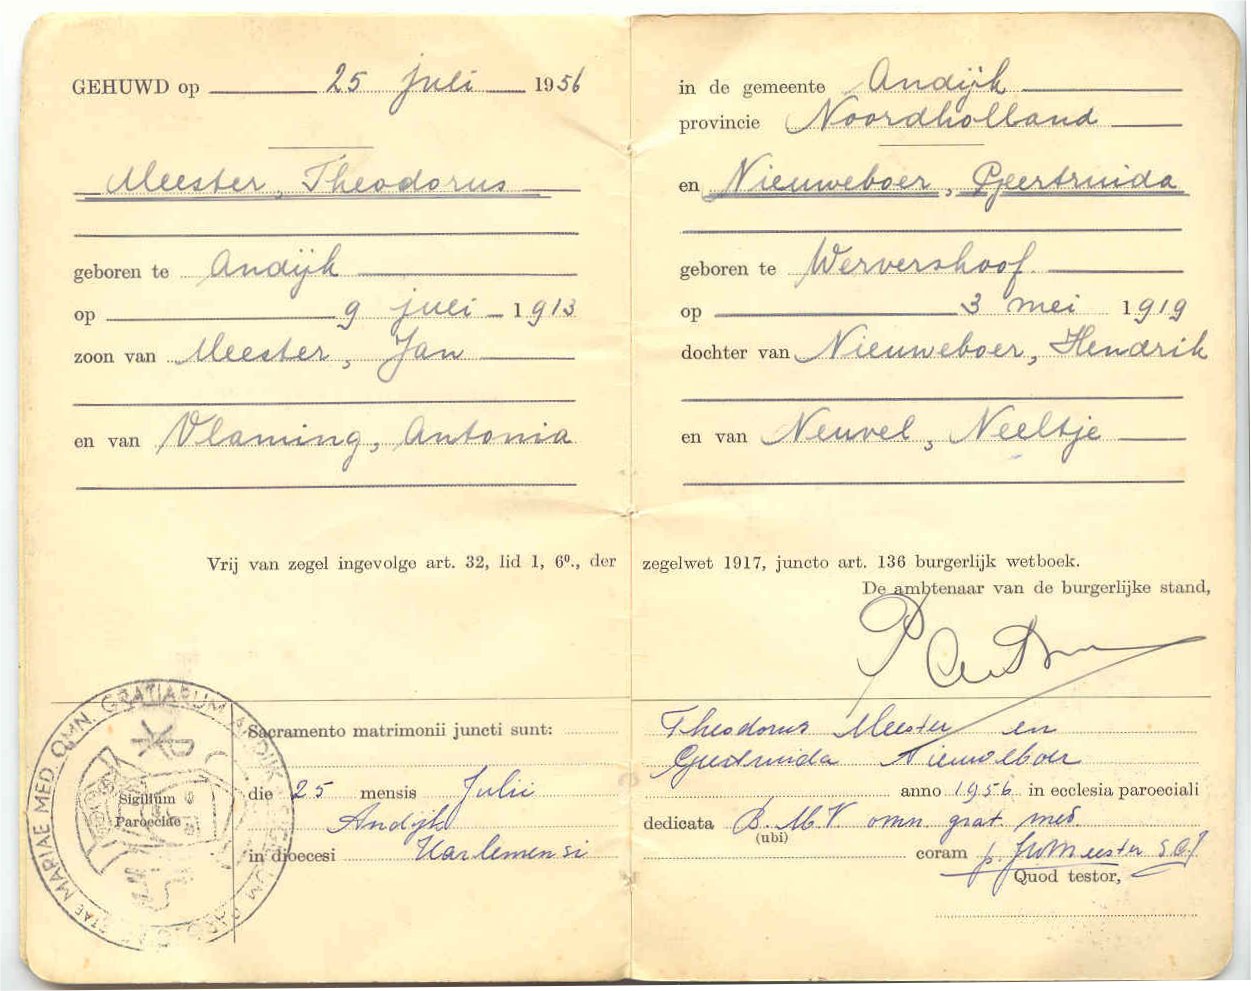 GEHUWD op 25 juli 1956
Meester, Theodorus
geboren te Andijk
op 9 juli 1913
zoon van Meester, Jan
en van Vlaming, Antonia
in de gemeente Andijk
provincie Noordholland
en Nieuweboer, Geertruida
geboren te Wervershoof
op 3 mei 1919
dochter van Nieuweboer, Hendrik
en van Neuvel, Neeltje
Vrij van zegel ingevolge art. 32, lid 1, 6º., der zegelwet 1917, juncto art. 136 burgerlijk wetboek.
De ambtenaar van de burgerlijke stand,
Sacramento matrimonii juncti sunt: Theodorus Meester en
Geertruida Nieuweboer
die 25 mensis Julii anno 1956 in ecclesia paroeciali
Andijk dedicata B.M.V omn grat. med.
(ubi)
in dioecesi Harlemensi coram p. Meester S.C.J
Quod testor,
MARIAE MED OMN. GRATIARUM ANDIJK
Sigillum
Paroeciae